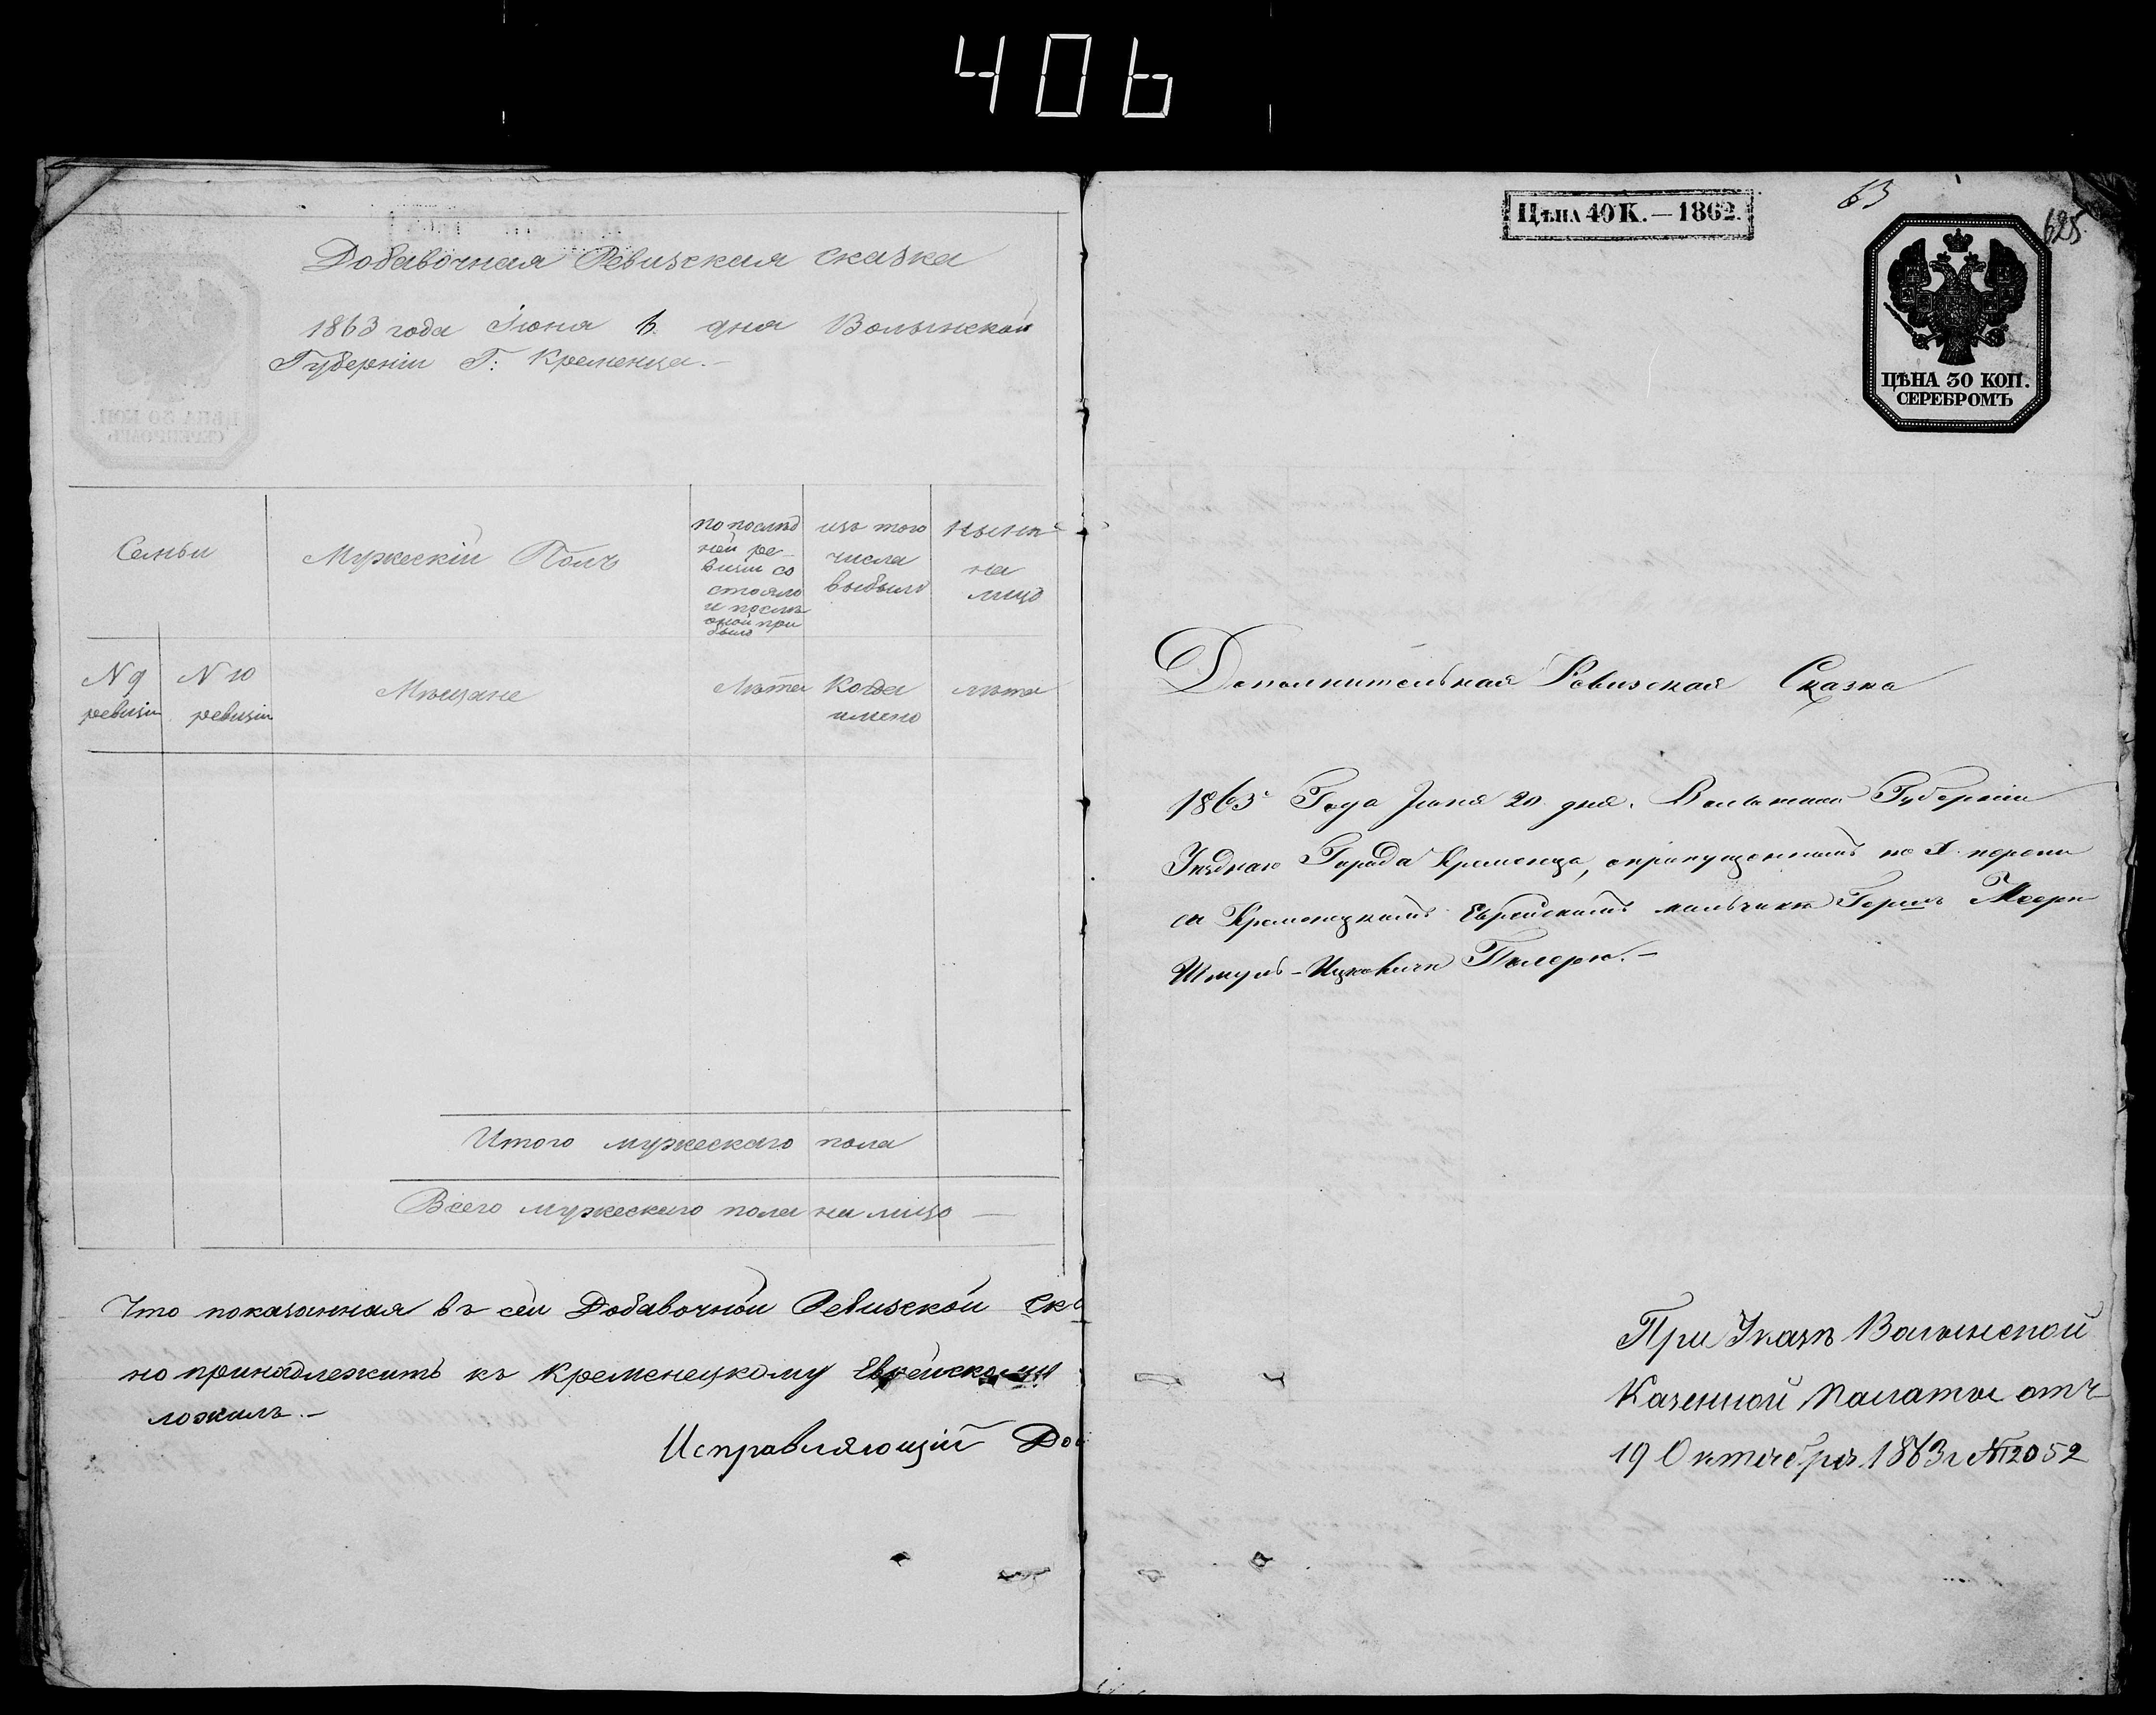 406
Добавочная Ревизская сказка
1863 года Іюня 6. дня Волынской
Губерніи Г: Кременца.—
Семьи
Мужескій Полъ
по послѣд
ней ре-
визіи со
стояло
и послѣ
оной при
было
изъ того
числа
выбыло
Нынѣ
на
лицо
N 9
ревизіи
N 10
ревизіи
Мѣщане
Лѣта
Когда
имено
лѣта
Итого мужескаго пола
Всего мужескаго пола на лицо —
Что показанная въ сей Добавочной Ревизской Ск
но принадлежитъ къ Кременецкому Еврейскому
ложилъ.—
Исправляющій До
Цѣна 40 К. — 1862.
63
625
ЦѢНА 30 КОП.
СЕРЕБРОМЪ
Дополнительная Ревизская Сказка
1863 Года Іюня 20 дня. Волынской Губерніи
Уѣзднаго Города Кременца, о пропущенномъ по X. перепи
си Кременецкомъ Еврейскомъ мальчикѣ Гершъ Меерѣ
Шмуль-Ицковичѣ
При Указѣ Волынской
Казенной Палаты отъ
19 Октября 1863 г №12052